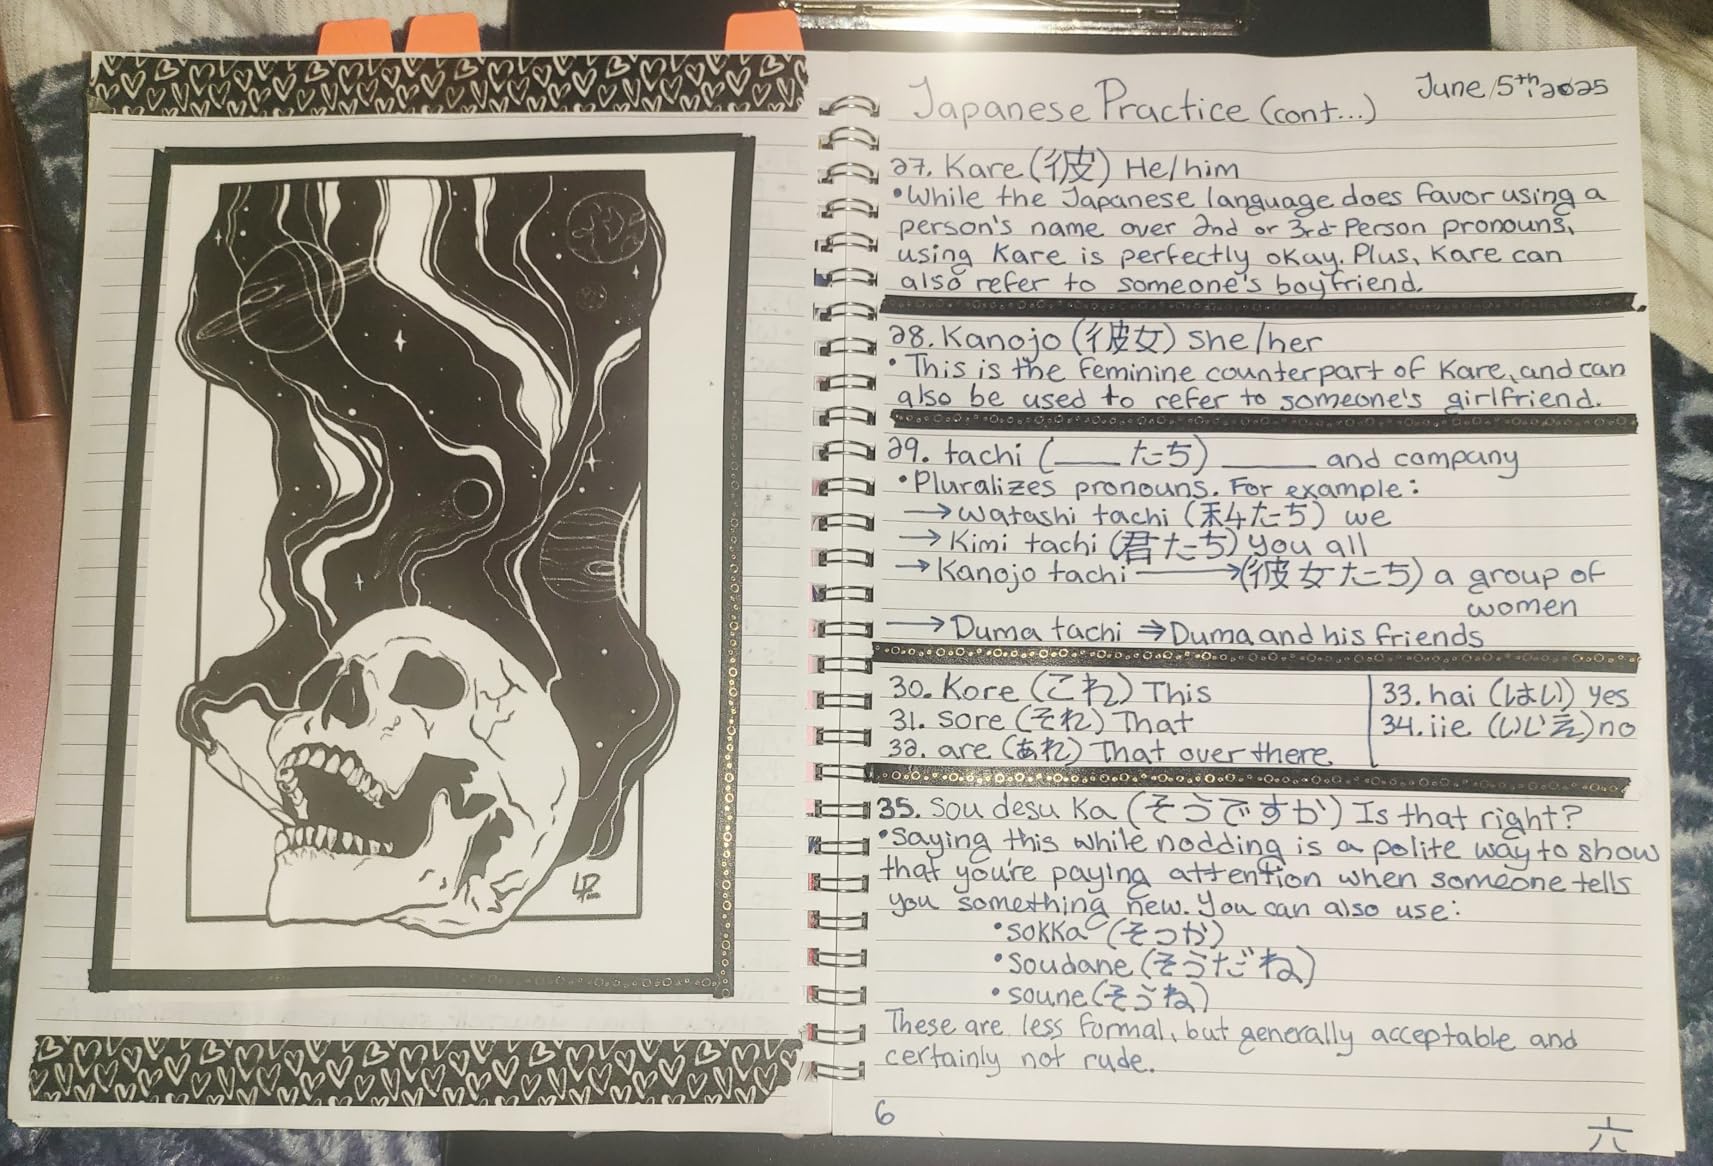 Japanese Practice (cont...)
June 5th, 2025
27. Kare (彼) He/him
•While the Japanese language does favor using a
person's name over 2nd or 3rd-Person pronouns,
using Kare is perfectly okay. Plus, Kare can
also refer to someone's boyfriend.
28. Kanojo (彼女) She/her
•This is the feminine counterpart of Kare, and can
also be used to refer to someone's girlfriend.
29. tachi (____たち) _____ and company
•Pluralizes pronouns. For example:
→Watashi tachi (私たち) we
→Kimi tachi (君たち) you all
→Kanojo tachi →(彼女たち) a group of
women
→Duma tachi ⇒Duma and his friends
30. Kore (これ) This
31. Sore (それ) That
32. are (あれ) That over there
33. hai (はい) yes
34. iie (いいえ) no
35. Sou desu Ka (そうですか) Is that right?
•Saying this while nodding is a polite way to show
that you're paying attention when someone tells
you something new. You can also use:
•SOKKa (そっか)
•Soudane (そうだね)
•soune (そうね)
These are less formal, but generally acceptable and
certainly not rude.
6
六